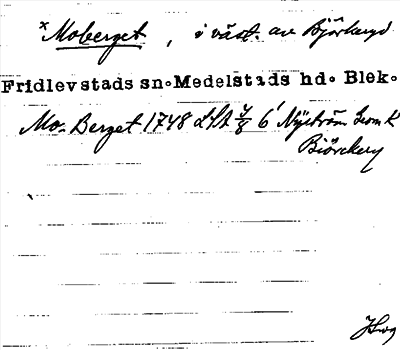 ×Moberget, i väst. av Björkeryd
Fridlevstads sn. Medelstads hd. Blek.
Mo-Berget 1748 LSA 6' Nyström Geom K
Biörckery